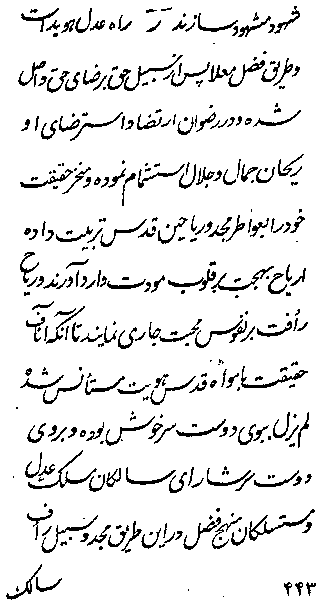 شهود مشهود سازند راه عدل هویداست
و طریق فضل معلا پس از سبیل حق برضای حق واصل
شده و در رضوان ارتضا و استرضای او
ریحان جمال و جلال استشمام نموده و منخر حقیقت
خود را بعواطر مجد و ریاحین قدس تربیت داده
اریاح بهجت بر قلوب مودت وارد آورند و ریاح
رأفت بر نفوس محبت جاری نمایند تا آنکه آناف
حقیقت باهواه قدس هویت مستأنس شده
لم یزل ببوی دوست سرخوش بوده و بروی
دوست سرشار ای سالکان مسلک عدل
و مستسلکان منهج فضل در این طریق مجد و سبیل رأف
سالک
۴۴۳